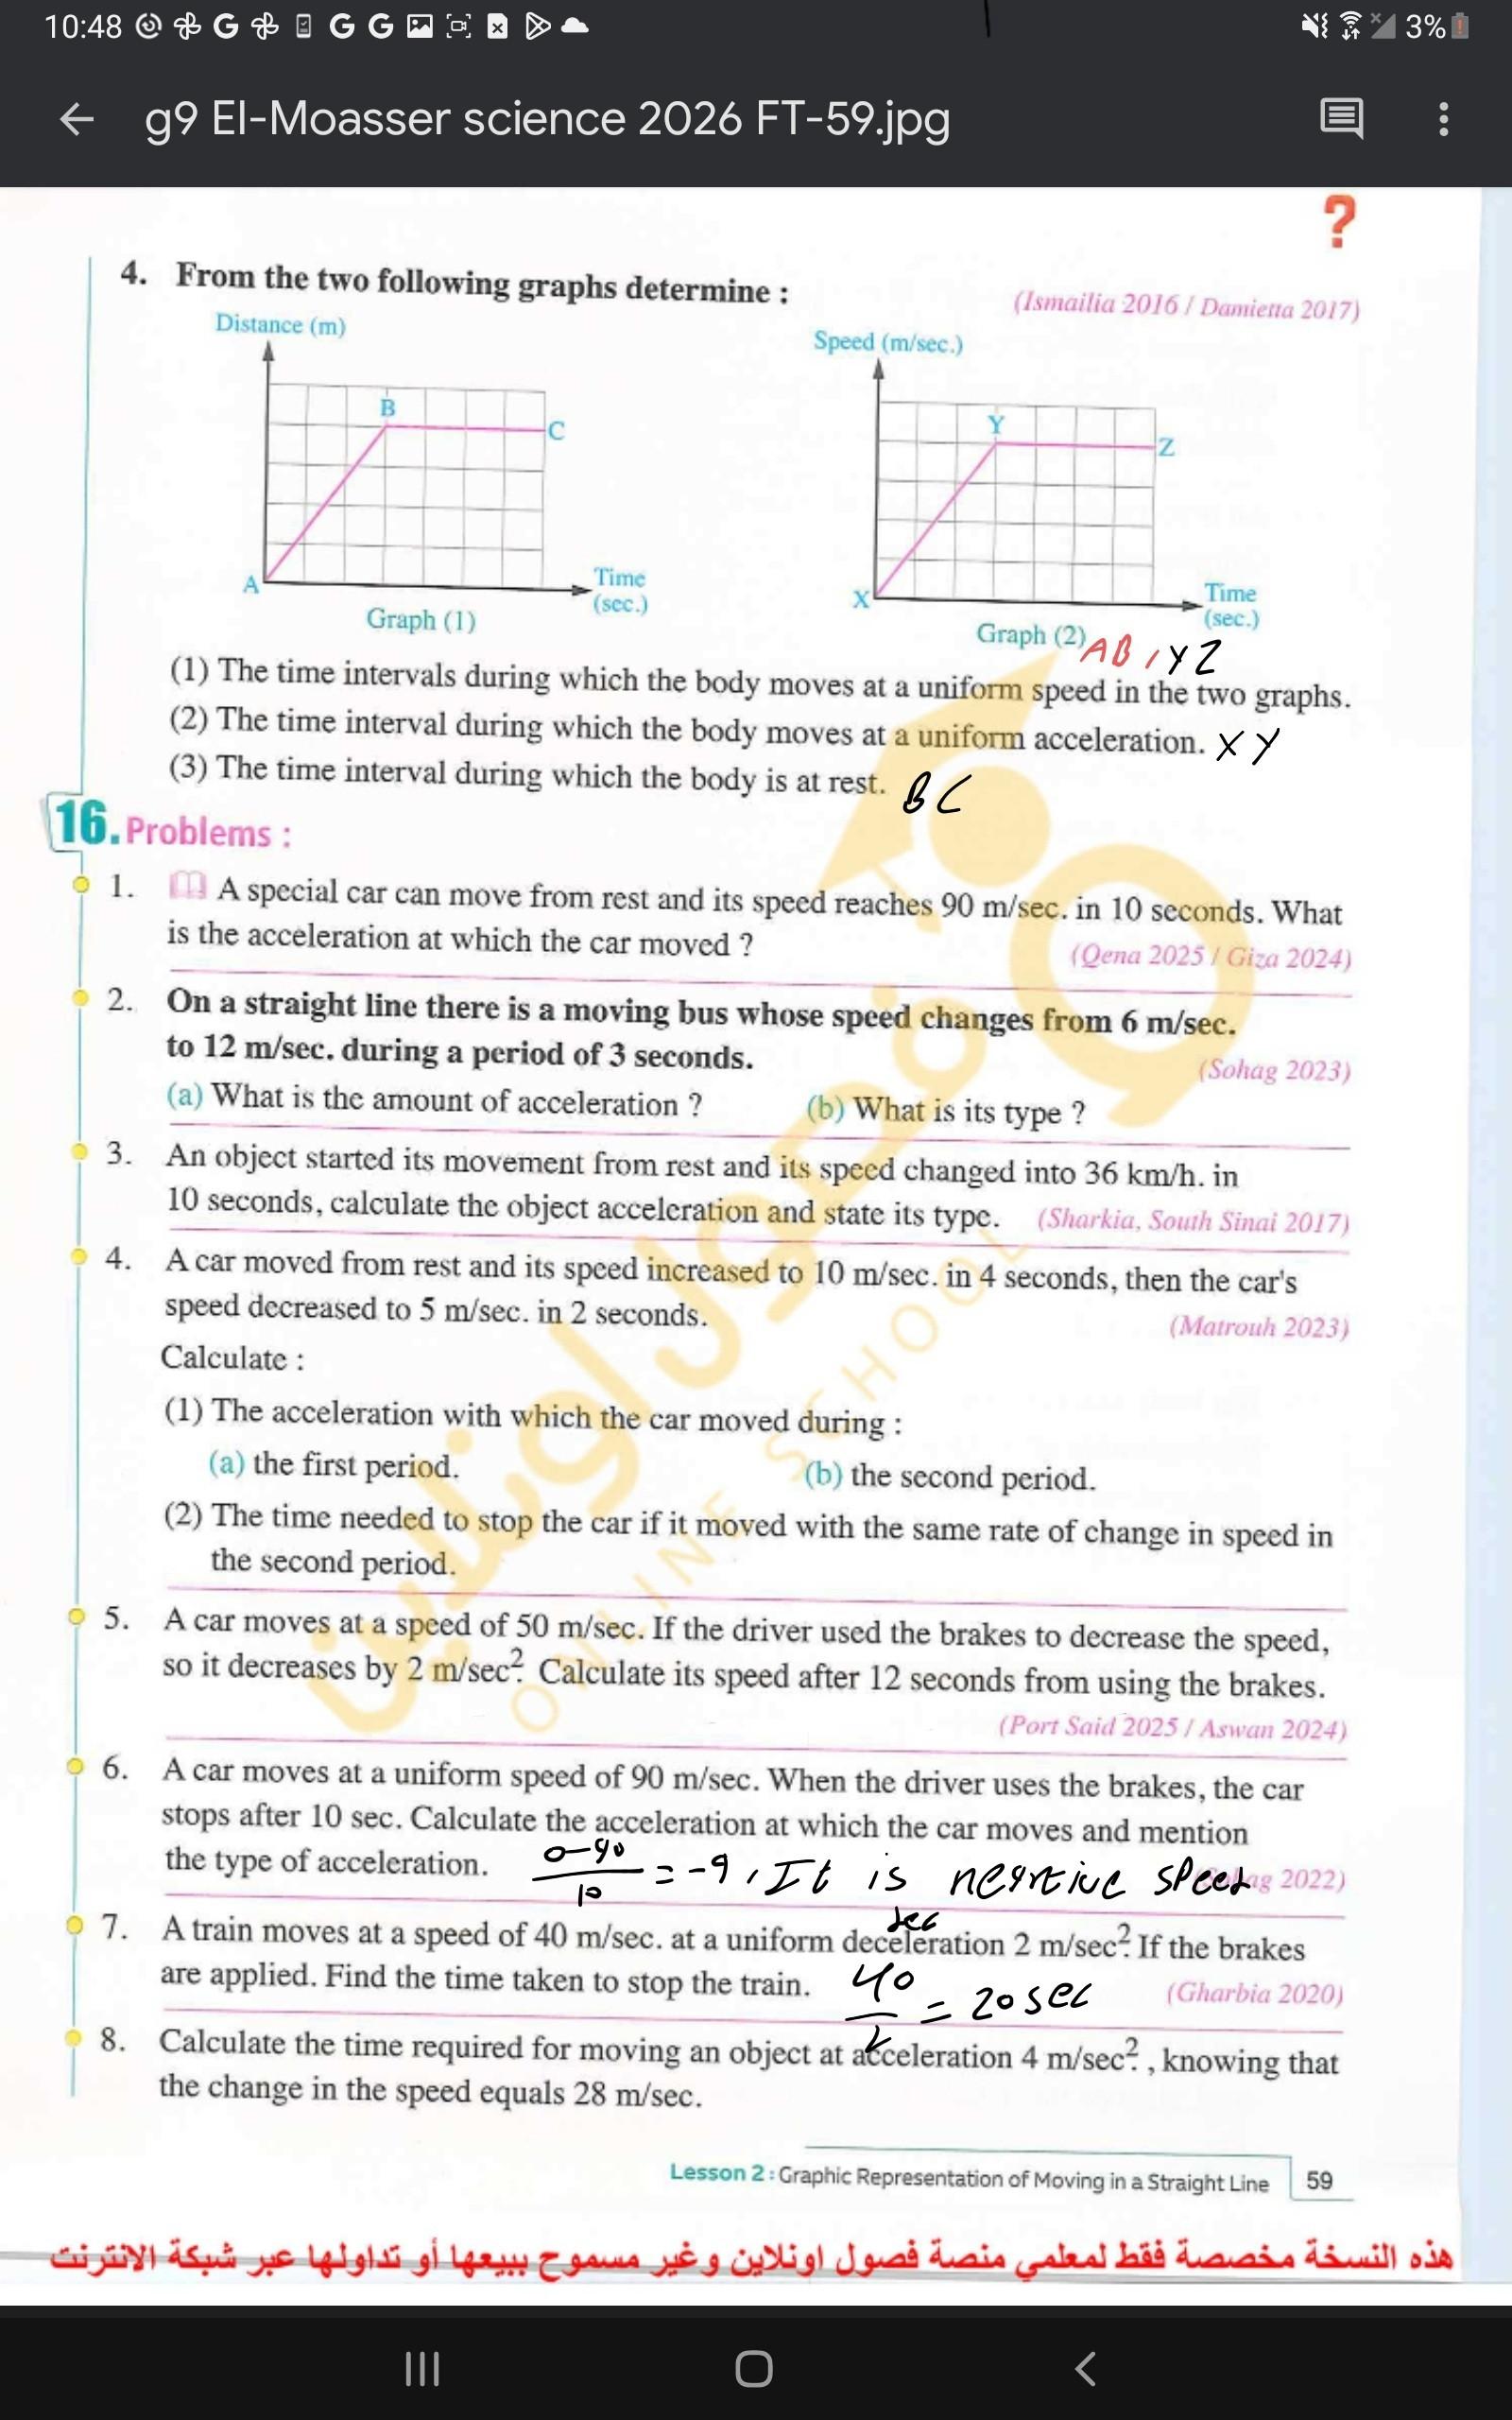 10:48
3%
g9 El-Moasser science 2026 FT-59.jpg
?
4. From the two following graphs determine :
(Ismailia 2016 / Damietta 2017)
Distance (m)
B
C
A
Time
(sec.)
Graph (1)
Speed (m/sec.)
Y
Z
X
Time
(sec.)
Graph (2)
AB, YZ
(1) The time intervals during which the body moves at a uniform speed in the two graphs.
(2) The time interval during which the body moves at a uniform acceleration. XY
(3) The time interval during which the body is at rest. BC
16. Problems :
1. A special car can move from rest and its speed reaches 90 m/sec. in 10 seconds. What
is the acceleration at which the car moved ?
(Qena 2025 / Giza 2024)
2. On a straight line there is a moving bus whose speed changes from 6 m/sec.
to 12 m/sec. during a period of 3 seconds.
(Sohag 2023)
(a) What is the amount of acceleration ? (b) What is its type ?
3. An object started its movement from rest and its speed changed into 36 km/h. in
10 seconds, calculate the object acceleration and state its type. (Sharkia, South Sinai 2017)
4. A car moved from rest and its speed increased to 10 m/sec. in 4 seconds, then the car's
speed decreased to 5 m/sec. in 2 seconds.
(Matrouh 2023)
Calculate :
(1) The acceleration with which the car moved during :
(a) the first period. (b) the second period.
(2) The time needed to stop the car if it moved with the same rate of change in speed in
the second period.
5. A car moves at a speed of 50 m/sec. If the driver used the brakes to decrease the speed,
so it decreases by 2 m/sec². Calculate its speed after 12 seconds from using the brakes.
(Port Said 2025 / Aswan 2024)
6. A car moves at a uniform speed of 90 m/sec. When the driver uses the brakes, the car
stops after 10 sec. Calculate the acceleration at which the car moves and mention
the type of acceleration.
0-90
10
= -9, It is speed
2022)
sec
7. A train moves at a speed of 40 m/sec. at a uniform deceleration 2 m/sec². If the brakes
are applied. Find the time taken to stop the train.
40
2
= 20 sec
(Gharbia 2020)
8. Calculate the time required for moving an object at acceleration 4 m/sec². , knowing that
the change in the speed equals 28 m/sec.
Lesson 2 : Graphic Representation of Moving in a Straight Line 59
فصول اونلاين
ONLINE SCHOOL
هذه النسخة مخصصة فقط لمعلمي منصة فصول اونلاين وغير مسموح ببيعها أو تداولها عبر شبكة الانترنت